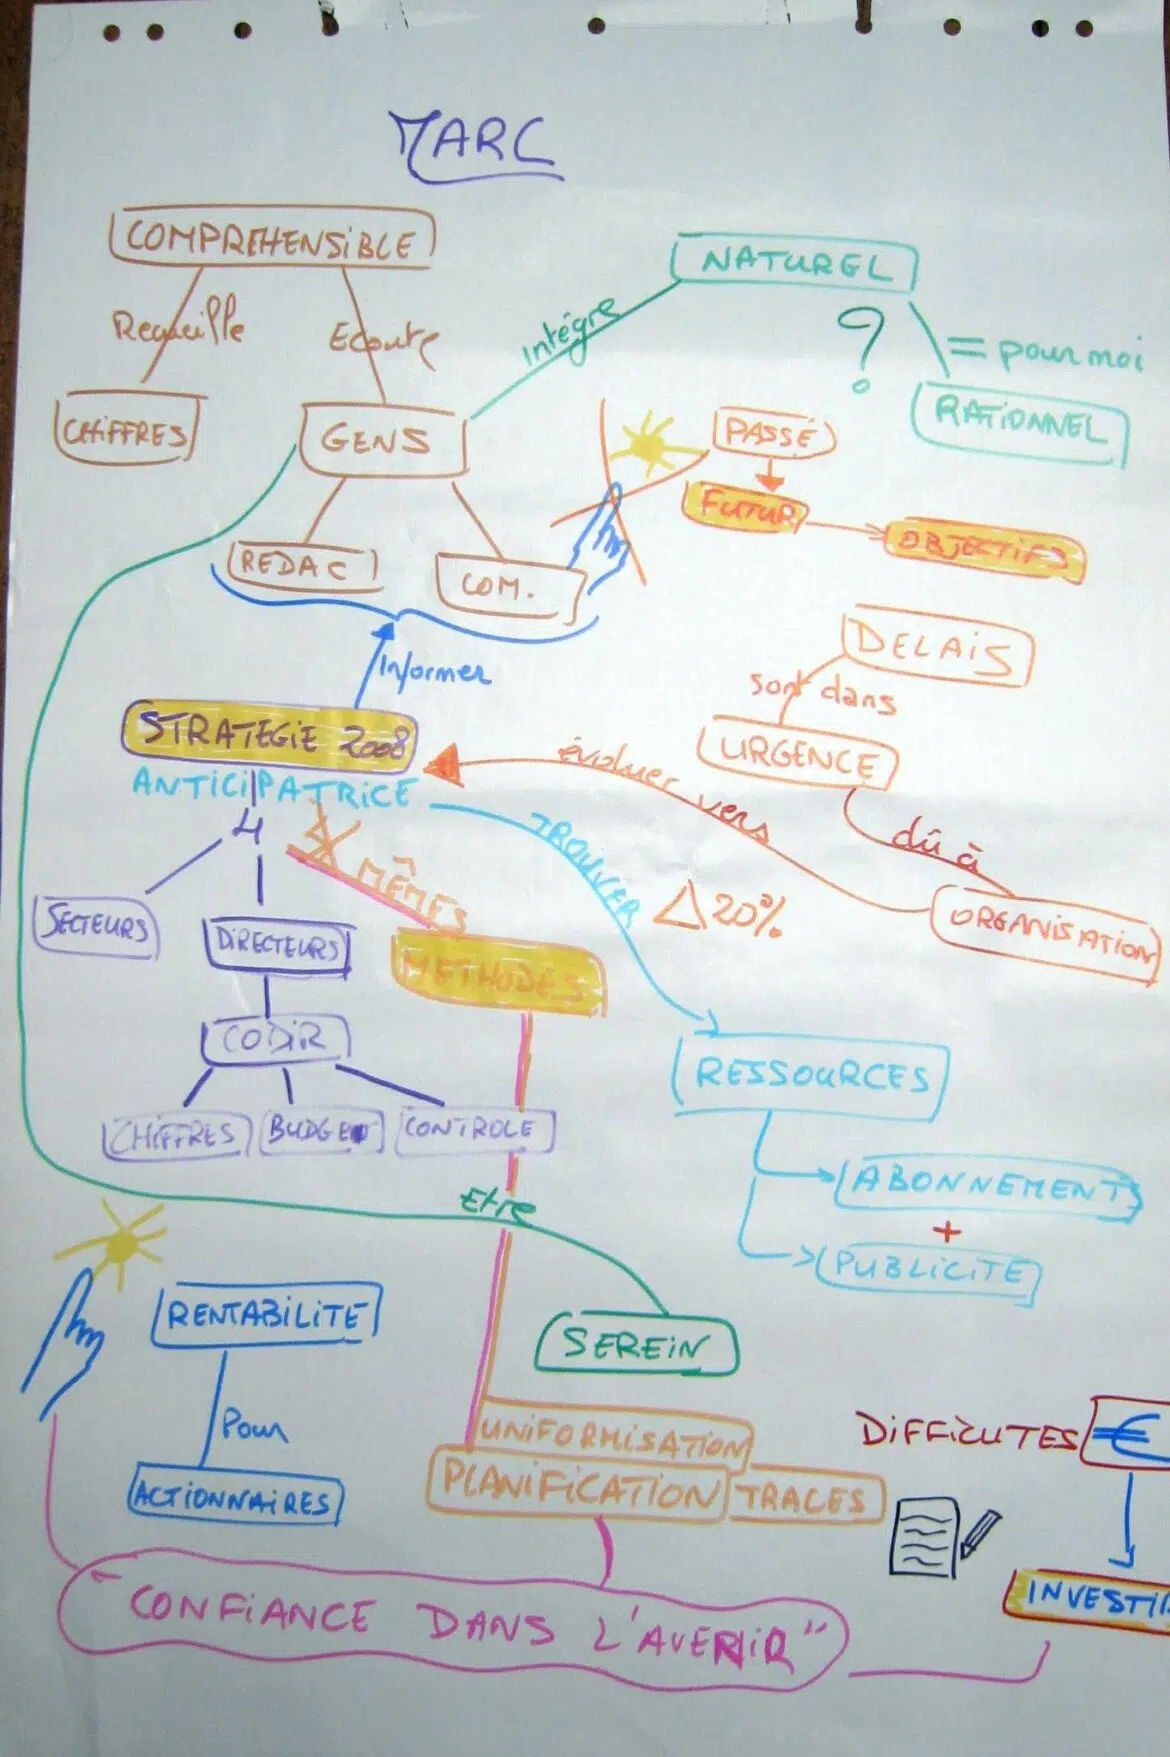 MARC
COMPREHENSIBLE
NATUREL
Recueille
Ecoute
Intégre
?
= pour moi
CHIFFRES
GENS
PASSÉ
RATIONNEL
FUTUR
OBJECTIFS
REDAC
COM.
DELAIS
Informer
sont dans
STRATEGIE 2008
évoluer vers
URGENCE
ANTICIPATRICE
4
TROUVER
dû à
MÊMES
Δ 20%
SECTEURS
DIRECTEURS
ORGANISATION
METHODES
CODIR
RESSOURCES
CHIFFRES
BUDGET
CONTROLE
ABONNEMENTS
+
Etre
PUBLICITE
RENTABILITE
SEREIN
Pour
UNIFORMISATION
DIFFICUTES
€
ACTIONNAIRES
PLANIFICATION
TRACES
INVESTIR
"CONFIANCE DANS L'AVENIR"